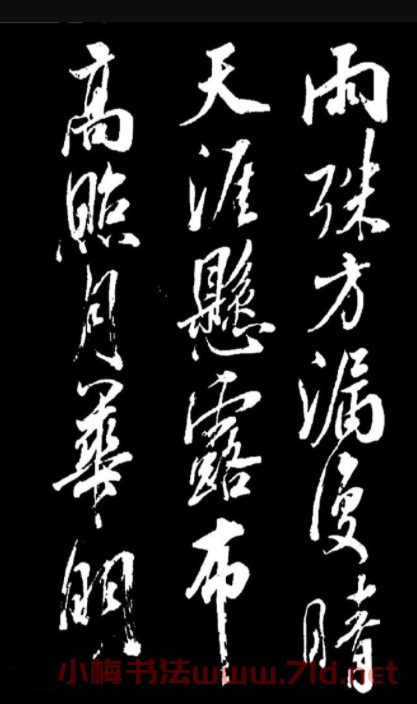 雨殊方漏便晴
天涯懸露布
高照月華明
小梅书法www.71d.net